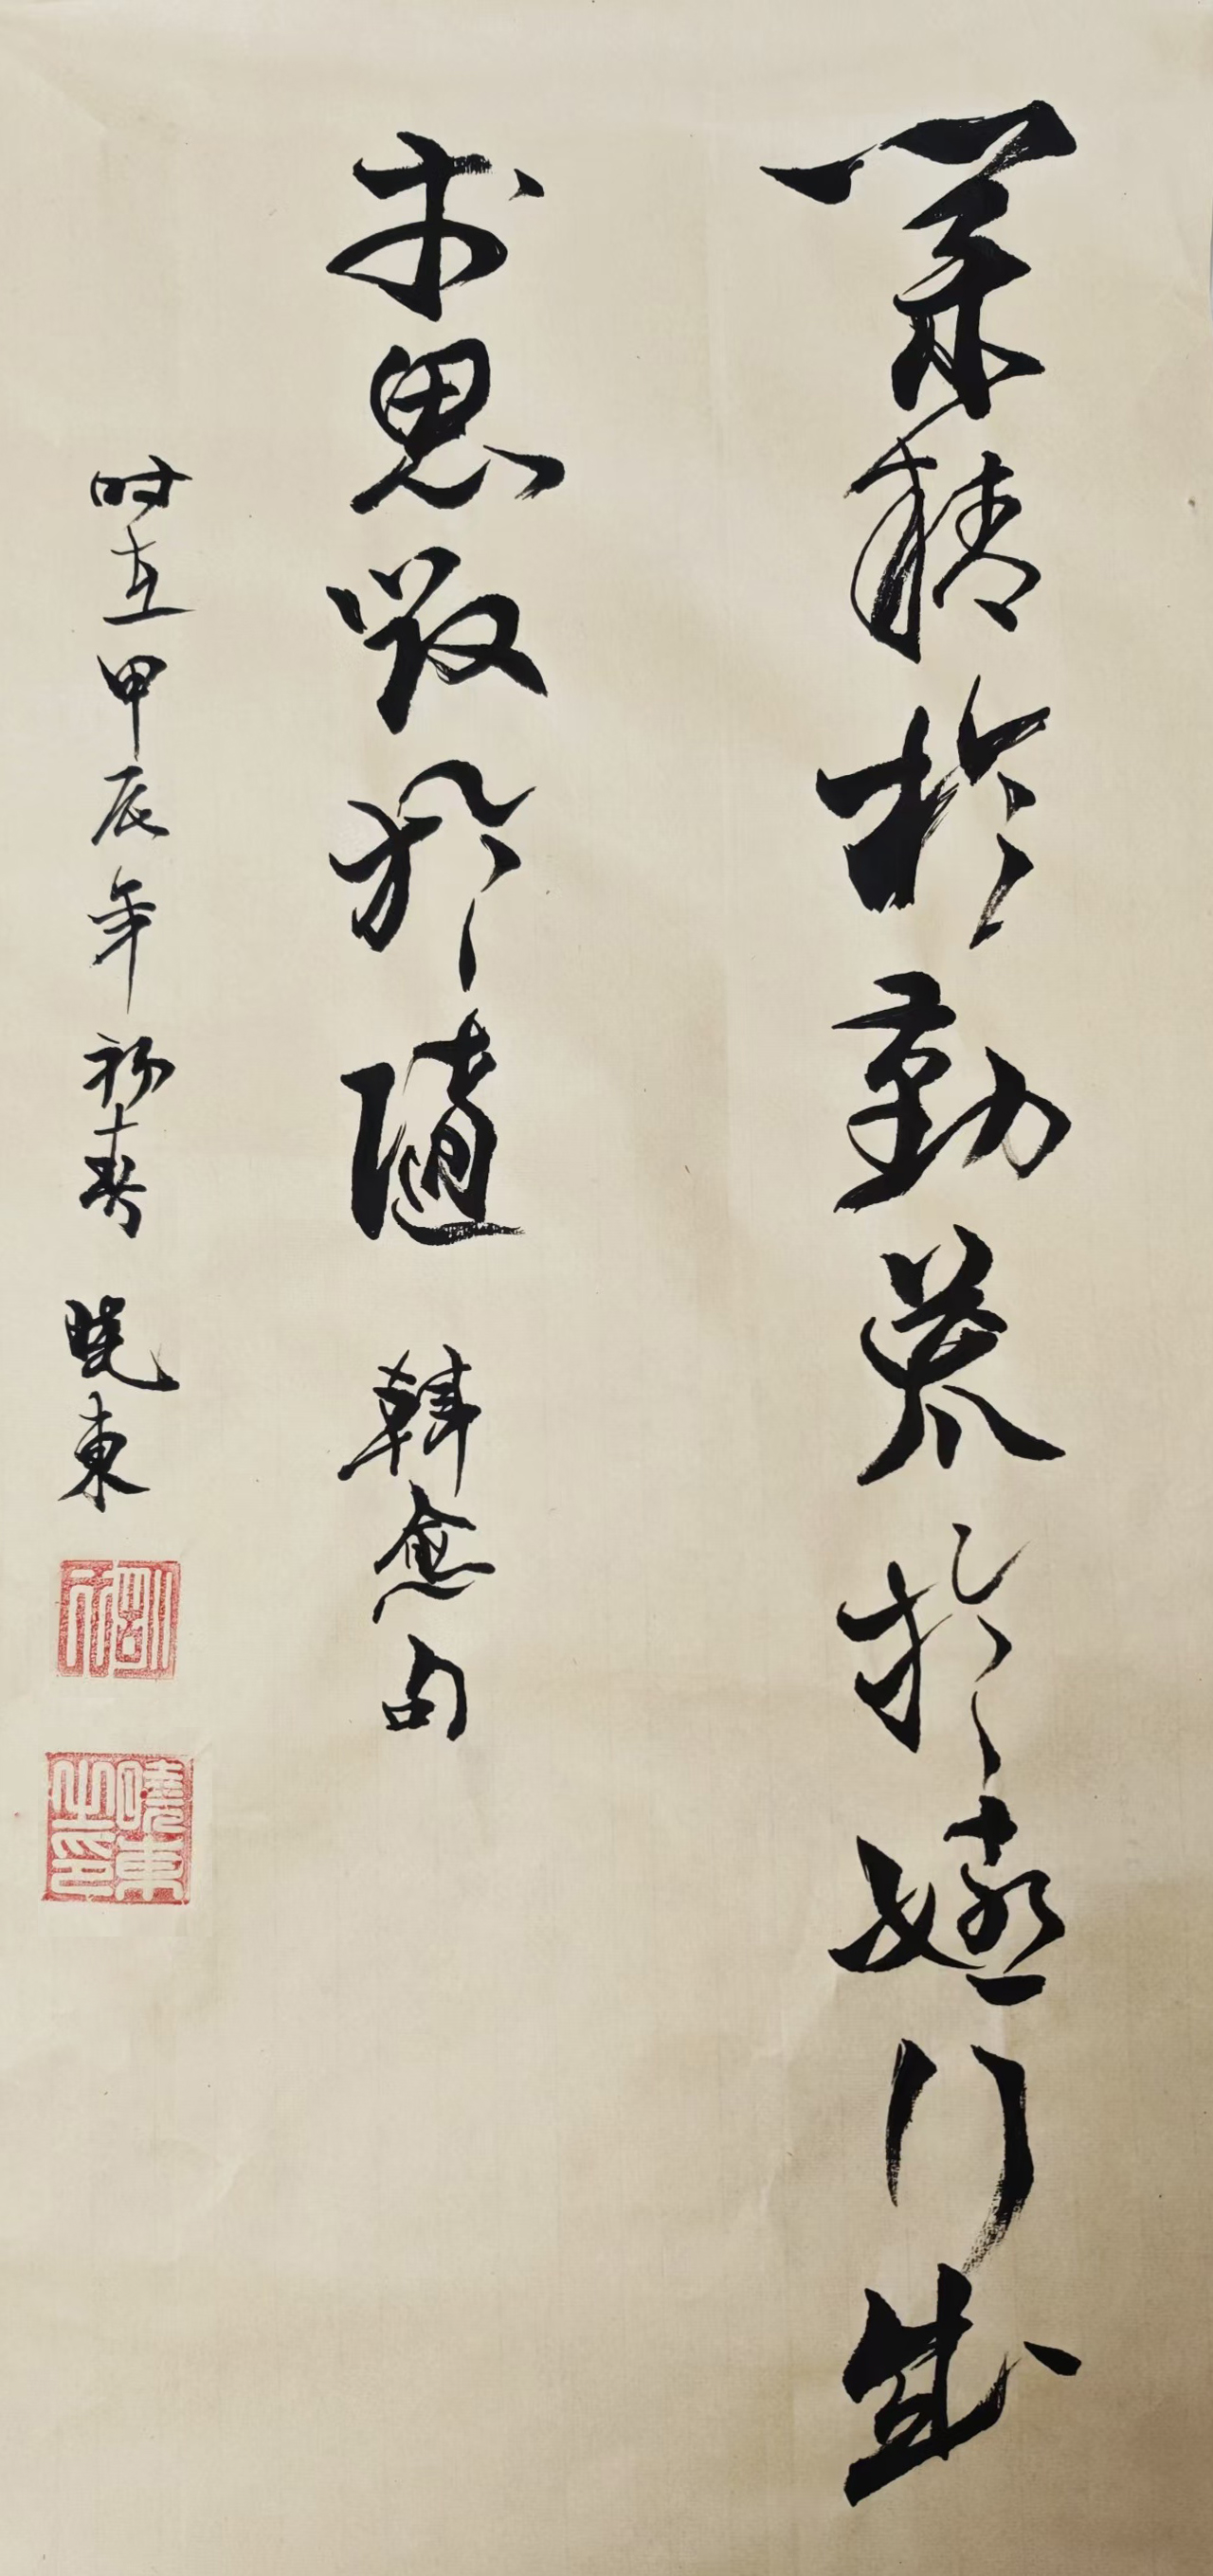 業精於勤荒於嬉行成
於思毀於隨 韓愈句
时在甲辰年初春 晓東
曉東之印